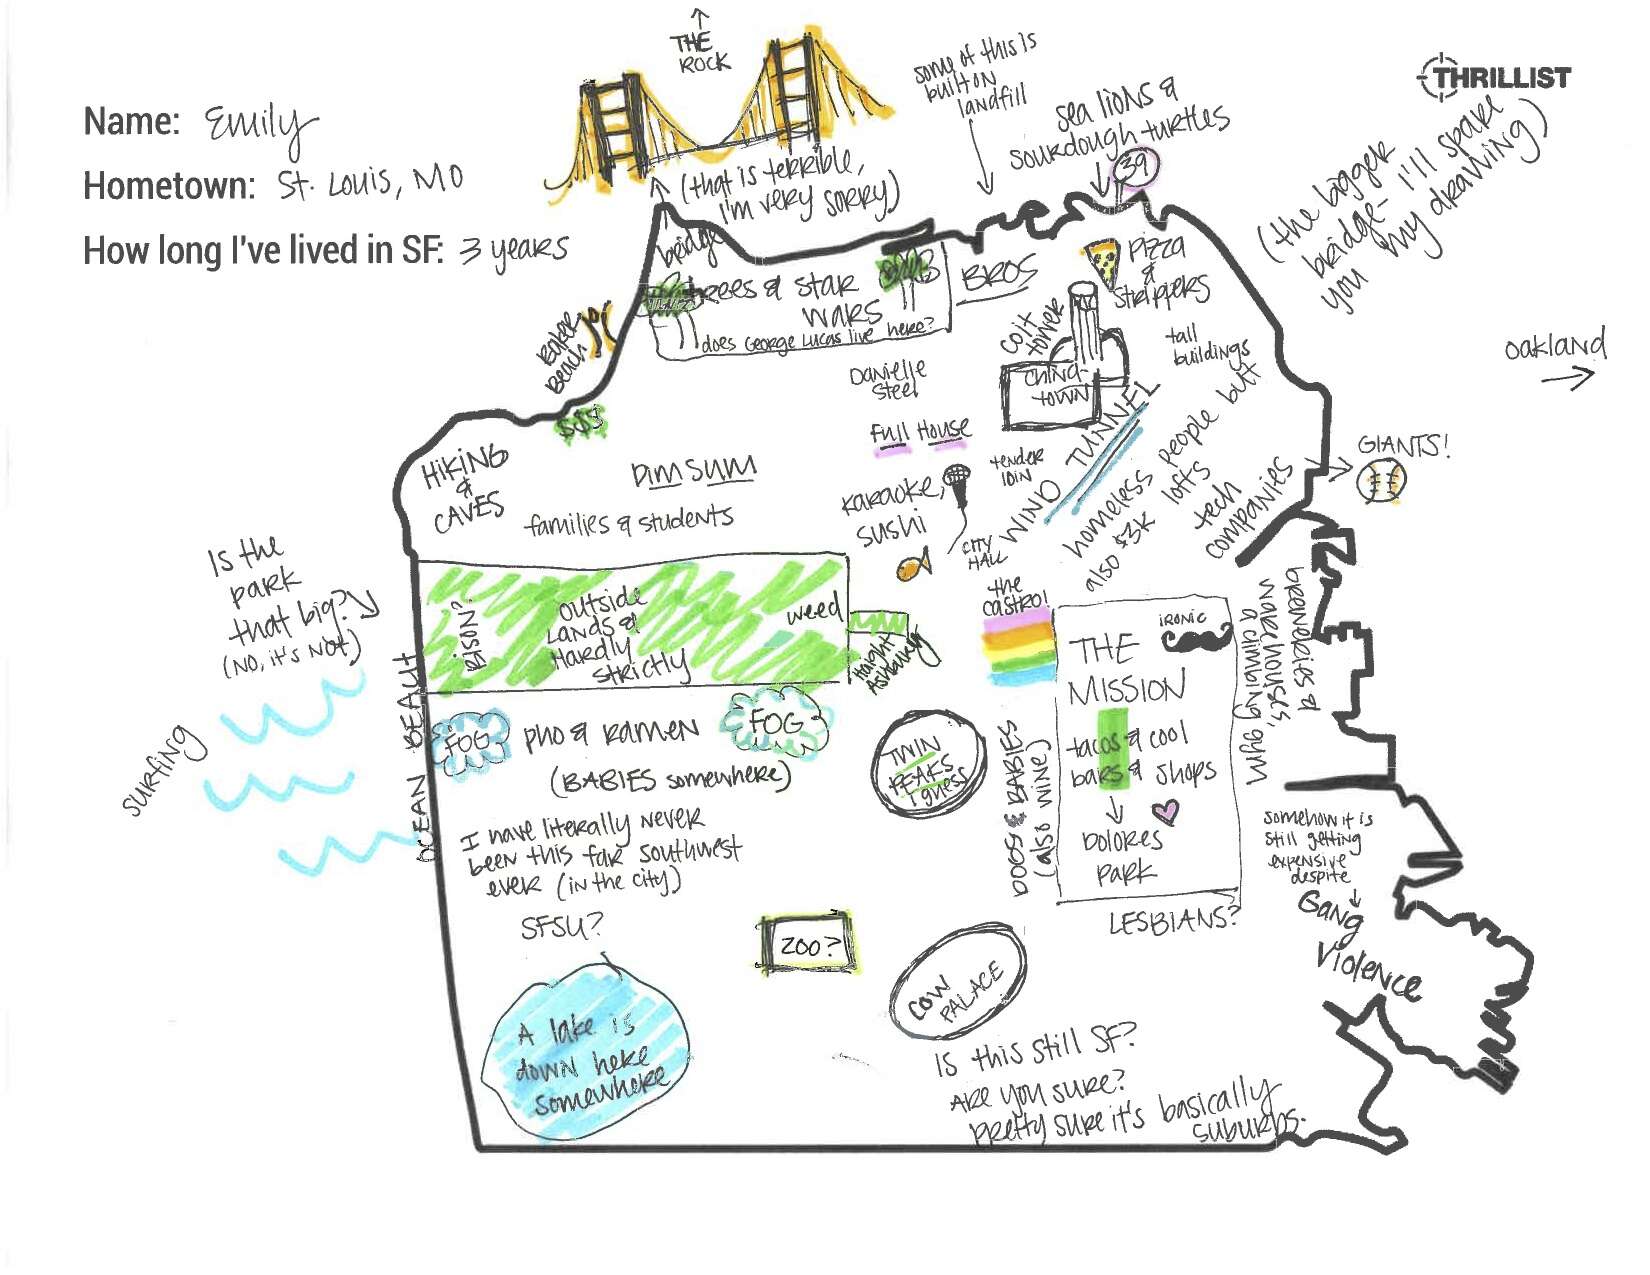 THRILLIST
Name: Emily
Hometown: St. Louis, MO
How long I've lived in SF: 3 years
THE
ROCK
(that is terrible,
I'm very sorry)
bridge
some of this is
built on
landfill
sea lions &
sourdough turtles
39
(the bigger
bridge- I'll spare
you my drawing)
Oakland
trees & star
wars
does George Lucas live here?
BROS
pizza
&
strippers
Baker
Beach
$$$
Coit
tower
China-
town
tall
buildings
Danielle
Steel
Full House
HIKING
&
CAVES
Dim Sum
families & students
karaoke,
sushi
tender
loin
WIND TUNNEL
CITY
HALL
homeless people but
also $3K lofts
tech
companies
GIANTS!
Is the
park
that big?
(NO, it's NOT)
BISON?
outside
lands &
Hardly
strictly
weed
Haight
Ashbury
the
castro!
ironic
THE
MISSION
tacos & cool
bars & shops
Dolores
park
LESBIANS?
breweries &
warehouses,
a climbing gym
surfing
OCEAN BEAUT
FOG
pho & ramen
(BABIES somewhere)
FOG
TWIN
PEAKS
I guess
DOGS & BABIES
(also wine)
I have literally never
been this far southwest
ever (in the city)
SFSU?
ZOO?
COW
PALACE
somehow it is
still getting
expensive
despite
Gang
Violence
A lake is
down here
somewhere
Is this still SF?
Are you sure?
pretty sure it's basically
suburbs.